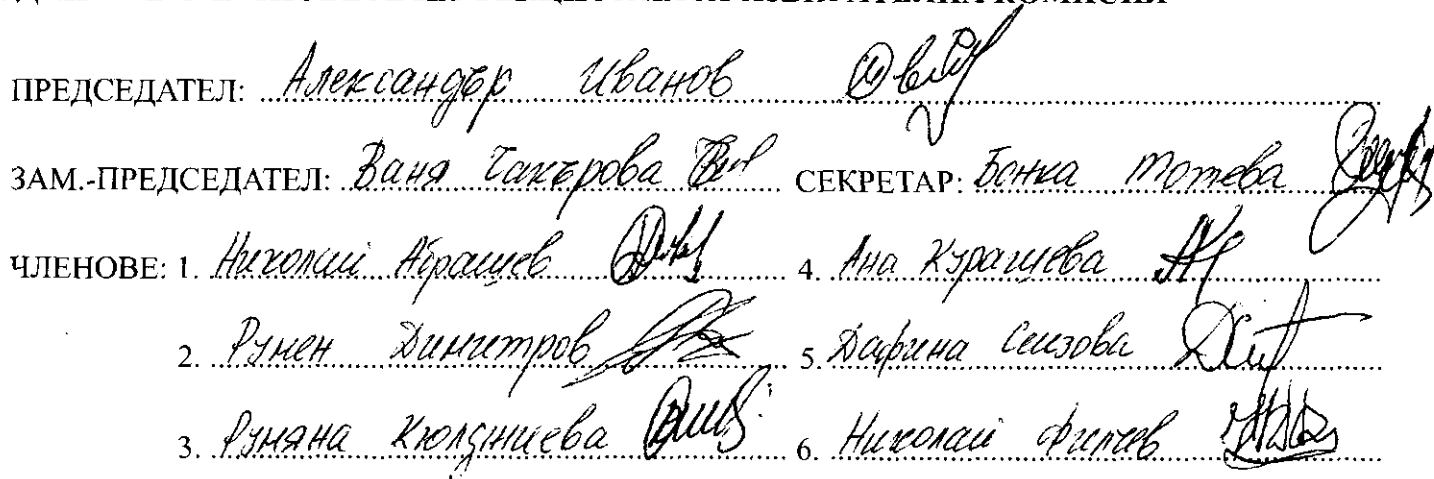 ПРЕДСЕДАТЕЛ: Александър Иванов
ЗАМ.-ПРЕДСЕДАТЕЛ: Ваня Чакърова СЕКРЕТАР: Бонка Тотева
ЧЛЕНОВЕ: 1. Николай Абрашев 4. Ана Курашева
2. Румен Димитров 5. Дафина Сеизова
3. Румяна Кюлджиева 6. Николай Филчев